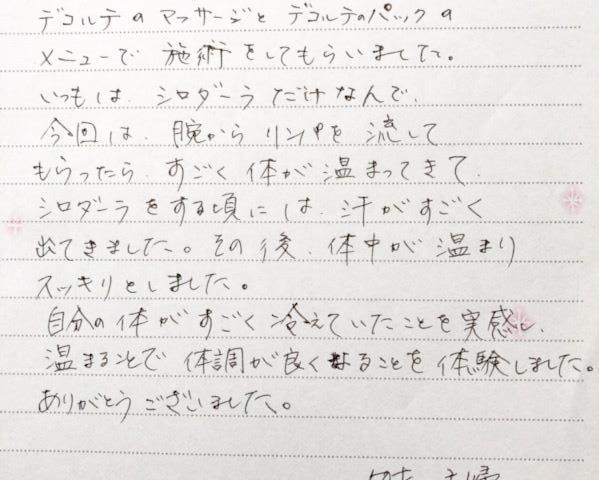 デコルテのマッサージとデコルテのパックの
メニューで 施術をしてもらいました。
いつもは シロダーラだけなんで、
今回は、腕から リンパを 流して
もらったら、すごく 体が 温まってきて、
シロダーラをする頃には、汗がすごく
出てきました。その後、体中が 温まり
スッキリとしました。
自分の体が すごく 冷えていたことを実感し、
温まることで 体調が良くなることを 体験しました。
ありがとうございました。